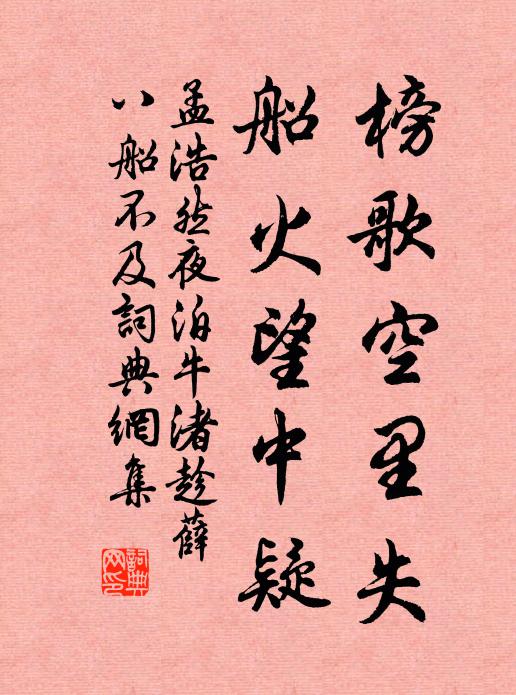 榜歌空里失
船火望中疑
孟浩然夜泊牛渚趁薛
八船不及詞典網集
詞典网印